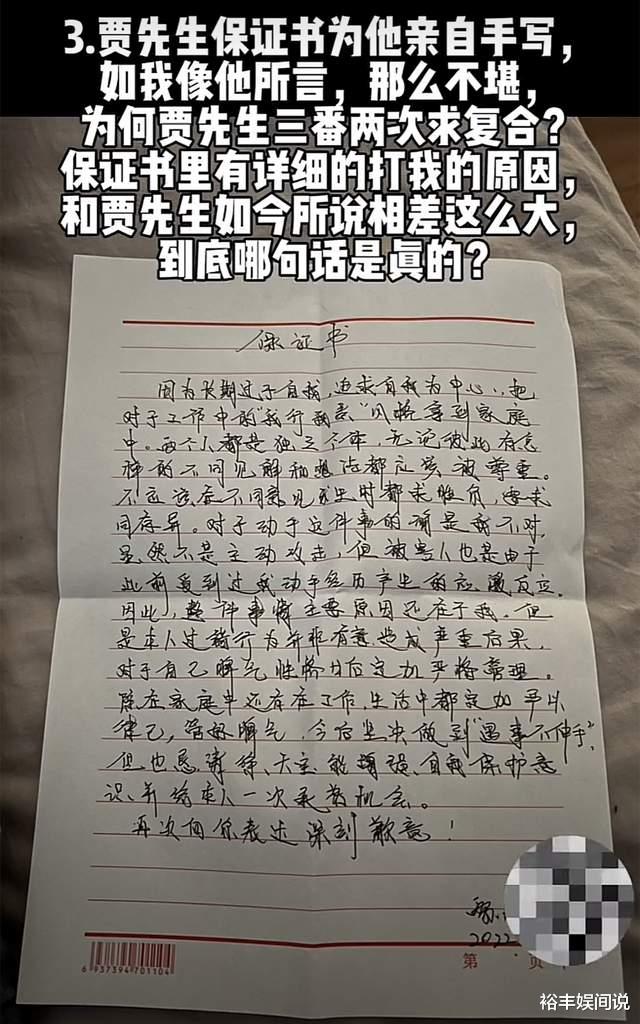 3.贾先生保证书为他亲自手写，
如我像他所言，那么不堪，
为何贾先生三番两次求复合？
保证书里有详细的打我的原因，
和贾先生如今所说相差这么大，
到底哪句话是真的？
保证书
因为长期过于自我，追求自我为中心，把
对于工作中的“我行我素”风格拿到家庭
中。两个人都是独立个体，无论彼此存怎
样的不同见解和想法都应该被尊重。
不应该在不同意见发生时都求胜负，要求
同存异。对于动手这件事的确是我不对，
虽然不是主动攻击，但被害人也是由于
此前受到过我动手经历产生的应激反应。
因此，整件事情主要原因还在于我。但
是本人过往行为并非有意造成严重后果，
对于自己脾气性格日后定加严格管理。
除在家庭中还存在工作、生活中都定加平以
律己， 脾气，今后坚决做到“遇事不伸手”，
但也恳请 、 能增强、自我保护意
识、并给本人一次 机会。
再次向你表达深刻歉意！
2022
第 页
6 937394 701104
裕丰娱间说